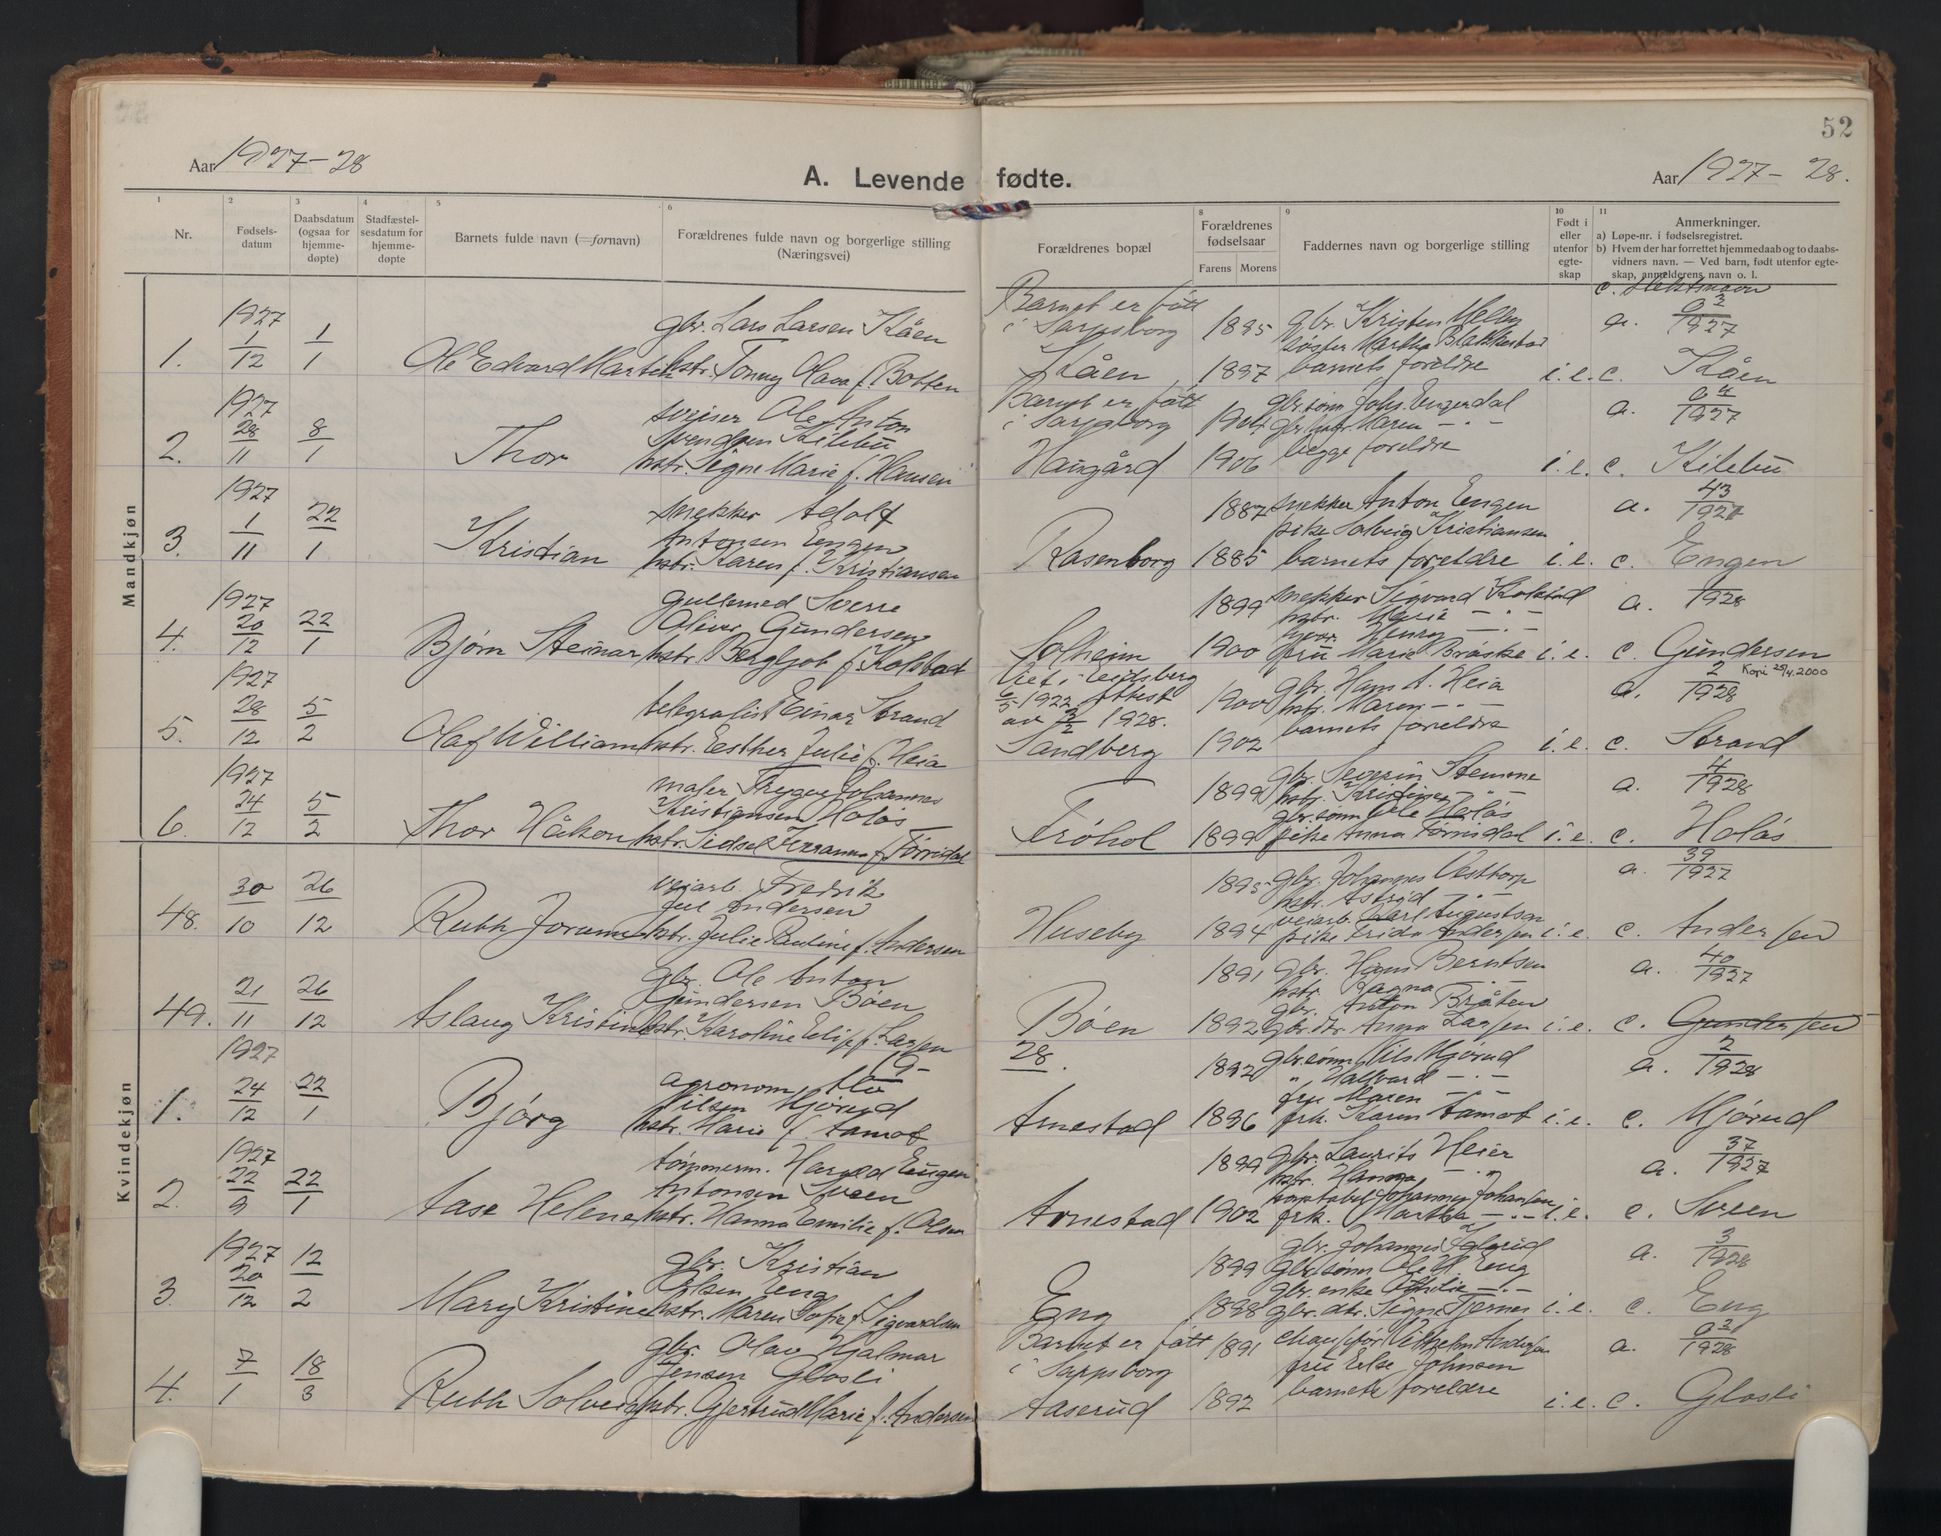 52
Aar 1927-28
A. Levende fødte.
Aar 1927-28.
1 2 3 4 5 6 8 9 10 11
Nr.
Fødsels-
datum
Daabsdatum
(ogsaa for
hjemme-
døpte)
Stadfæstel-
sesdatum for
hjemme-
døpte
Barnets fulde navn (=fornavn)
Forældrenes fulde navn og borgerlige stilling
(Næringsvei)
Forældrenes bopæl
Forældrenes
fødselsaar
Farens Morens
Faddernes navn og borgerlige stilling
Født i
eller
utenfor
egte-
skap
Anmerkninger.
a) Løpe-nr. i fødselsregistret.
b) Hvem der har forrettet hjemmedaab og to daabs-
vidners navn. — Ved barn, født utenfor egte-
skap, anmelderens navn o. l.
Mandkjøn
1. 1927 1/12 1/1 Ole Edvard Martin
gbr. Lars Larsen Kåen
hstr. Tonny Olava f. Botten
Barnet er født
i Sarpsborg
Kåen
1895
1897
gbr. Kristen Melby
søster Martha Blakkestad
barnets foreldre
i.e.
c. Slektsnavn
a. /1927
c. Kåen
2. 1927 28/11 8/1 Thor
sveiser Ole Anton
Svendsen Kilebu
hstr. Signe Marie f. Hansen
Barnet er født
i Sarpsborg
Haugård
1904
1906
gbr. sønn Johs. Engerdal
Maren — " —
begge foreldre
i.e.
a. /1927
c. Kilebu
3. 1927 1/11 22/1 Kristian
snekker Adolf
Antonsen Engen
hstr. Karen f. Kristiansen
Rosenborg
1887
1885
snekker Anton Engen
pike Solveig Kristiansen
barnets foreldre
i.e.
a. 43/1927
c. Engen
4. 1927 20/12 22/1 Bjørn Steinar
gullsmed Sverre
Oliver Gundersen
hstr. Bergljot f. Kolstad
Solheim
1899
1900
snekker Sigvard Kolstad
hstr. Marie — " —
Henry — " —
fru Marie Bråske
i.e.
a. /1928
c. Gundersen
5. 1927 28/12 5/2 Olaf William
telegrafist Einar Strand
hstr. Esther Julie f. Heia
Viet i Eidsberg
6/5 1922, attest
av 3/2 1928.
Sandberg
1900
1902
gbr. Hans A. Heia
hstr. Maren — " —
barnets foreldre
i.e.
Kopi 25/4.2000
a. 2/1928
c. Strand
6. 1927 24/12 5/2 Thor Håkon
maler Trygve Johannes
Kristiansen Holås
hstr. Sidsel Johanna f. Tørrisdal
Frøhol
1899
1899
gbr. Severin Stemme
hstr. Kristine — " —
gbr. sønn Ole Holås
pike Anna Tørrisdal
i.e.
a. 4/1928
c. Holås
Kvindekjøn
48. 30/10 26/12 Ruth Jorunn
veiarb. Fredrik
Jul Andersen
hstr. Julie Pauline f. Andersen
Huseby
1895
1894
gbr. Johannes Vesttorp
hstr. Astrid — " —
veiarb. Karl Augustsen
pike Frida Andersen
i.e.
a. 39/1927
c. Andersen
49. 21/11 26/12 Aslaug Kristine
gbr. Ole Anton
Gundersen Bøen
hstr. Karoline Elise f. Larsen
Bøen
1891
1892
gbr. Hans Berntsen
hstr. Ragna — " —
gbr. Anton Bråten
gbr. dtr. Anna Larsen
i.e.
a. 40/1927
c. Gundersen
28.
1. 1927 24/12 22/1 Bjørg
agronom Ole G.
Nilsen Mjørud
hstr. Marie f. Aamot
Arnestad
1892
1896
gbr. sønn Nils Mjørud
" Hallvard — " —
fru Maren — " —
frk. Karen Aamot
i.e.
a. 2/1928
c. Mjørud
2. 1927 22/9 22/1 Aase Helene
tømmerm. Harald Eugen
Antonsen Sveen
hstr. Hanna Emilie f. Olsen
Arnestad
1899
1902
gbr. Laurits Heier
hstr. Hanna — " —
Johannes Johansen
frk. Martha — " —
i.e.
a. 37/1927
c. Sveen
3. 1927 20/12 12/2 Mary Kristine
gbr. Kristian
Olsen Eng
hstr. Maren Sofie f. Sigvardsen
Eng
1899
1898
gbr. Johannes Iglerud
gbr. sønn Ole H. Eng
gbr. enke Othilie — " —
gbr. dtr. Signe Tjernes
i.e.
a. 3/1928
c. Eng
4. 7/1 18/3 Ruth Solveig
gbr. Olav Hjalmar
Jensen Glosli
hstr. Gjertrud Marie f. Andersen
Barnet er født
i Sarpsborg
Aaserud
1891
1892
chauffør Vilhelm Andersen
fru Else Johnsen
barnets foreldre
i.e.
a. /1928
c. Glosli